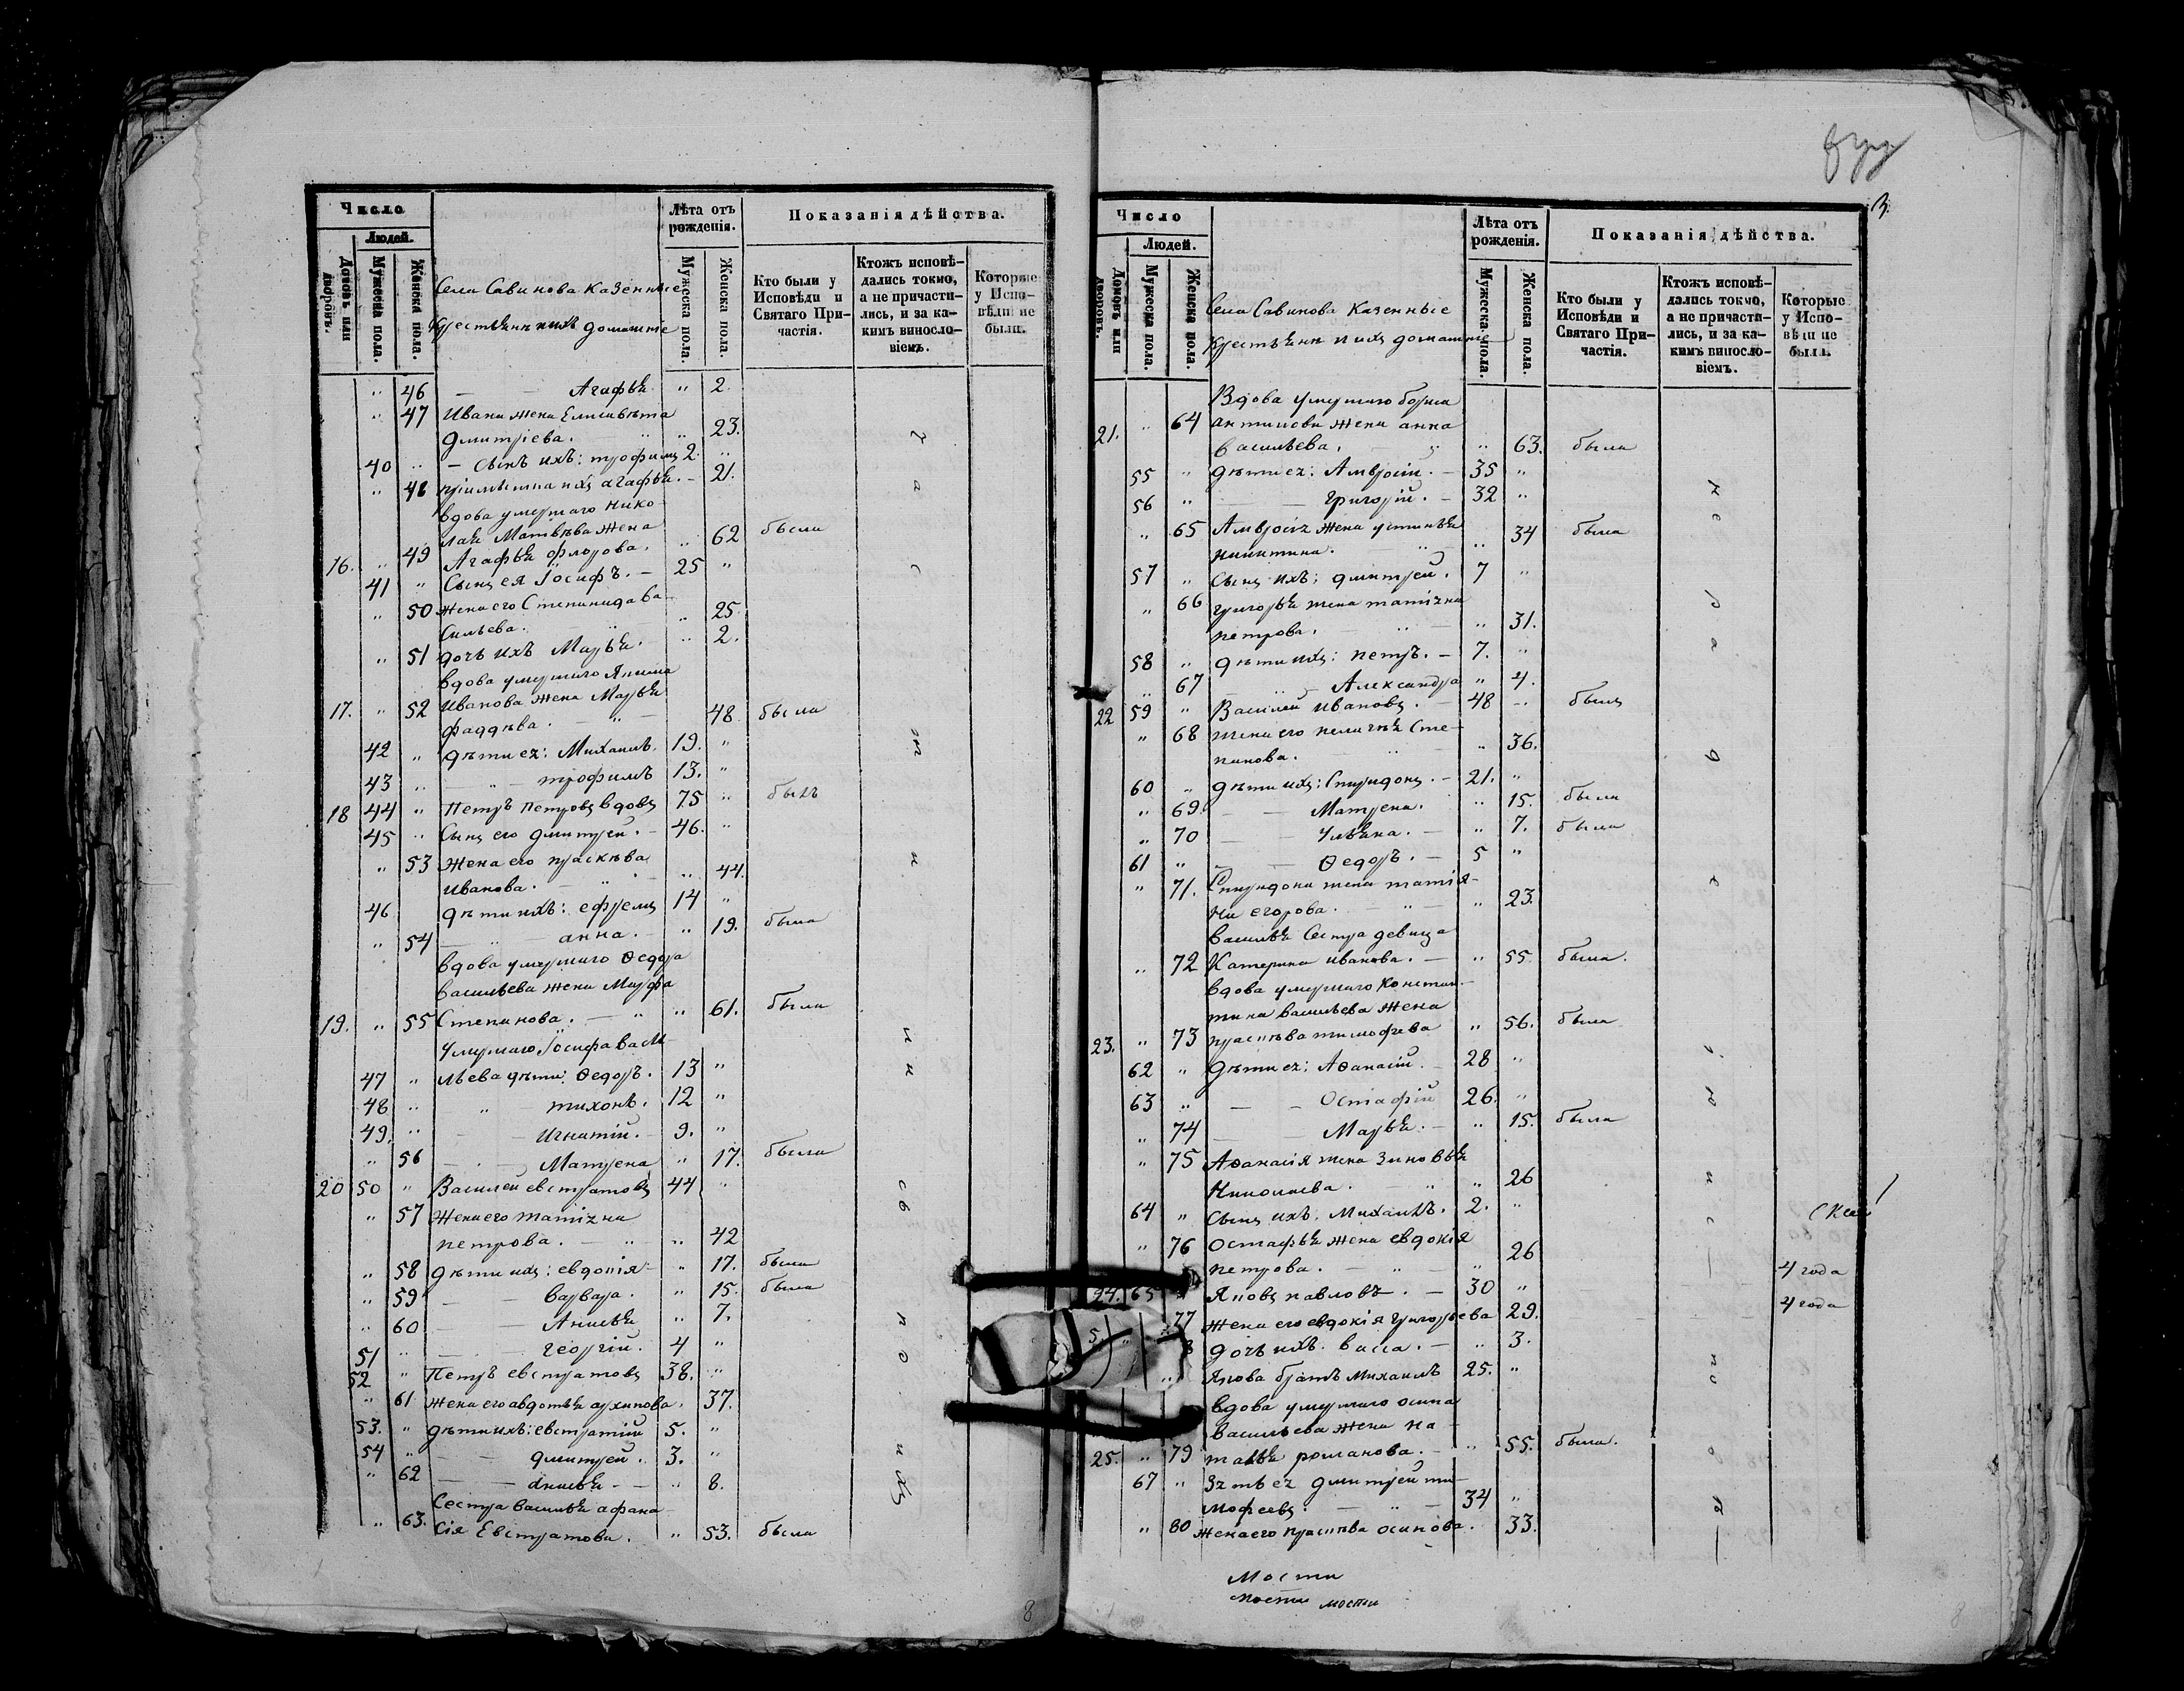 Число
Людей.
Домовъ или дворовъ.
Мужеска пола.
Женска пола.
Села Савинова Казенные
Крестьяне и ихъ домашніе
Лѣта отъ рожденія.
Мужеска пола.
Женска пола.
Показанія дѣйства.
Кто были у Исповѣди и Святаго Причастія.
Ктожъ исповѣдались токмо, а не причастились, и за какимъ винословіемъ.
Которые у Исповѣди не были.
" 46 — Агафья " 2.
" 47 Ивана жена Елисавѣта
Дмитріева. " " 23.
40 " — сынъ ихъ: трофимъ 2. "
" 48 агафья. — 21.
вдова умершаго Нико-
лая Матвѣва жена
16. " 49 Агафья Флорова. " 62 была
41 " Сынъ ея Іосифъ. — 25 "
" 50 жена его Степанида Ва-
сильева. " " 25.
" 51 дочь ихъ Марья. " 2.
вдова умершаго Якима
17. " 52 Иванова жена Марья
фаддѣва. — " — 48 была
42 " дѣти ея: Михаилъ. 19. "
43 " — " — трофимъ 13. "
18 44 " Петръ Петровъ вдовъ 75 " былъ
45 " Сынъ его дмитрей. — 46. "
" 53 жена его праскѣва
Иванова. — " — " 44.
46 дѣти ихъ: ефремъ 14 "
" 54 — " — анна. — " 19. была
вдова умершаго Ѳедора
васильева жена Марфа
19. " 55 Степанова. — " " 61. была
Умершаго Іосифа Васи-
47 " льева дѣти: Ѳедоръ. 13 "
48 " " тихонъ. 12 "
49. " — Игнатій. — 9. "
" 56 — — Матрена " 17. была
20 50 " Василей евстратовъ 44 "
" 57 Жена его татіяна
петрова. — " — " 42
" 58 дѣти ихъ: евдокія — " 17. была
" 59 — — варвара. " 15. была
" 60 — — Анисья " 7.
51 " — — георгій. 4 "
52 " Петръ евстратовъ 38. "
" 61 жена его авдотья архипова. 37.
53. " дѣти ихъ: евстратій 5. "
54 " — — дмитрей. 3. "
" 62 — — анисья — — " 8.
Сестра василья афана-
" 63. сія Евстратова. " 53. была
8
3.
Число
Людей.
Домовъ или дворовъ.
Мужеска пола.
Женска пола.
Села Савинова Казенные
Крестьяне и ихъ домашніе
Лѣта отъ рожденія.
Мужеска пола.
Женска пола.
Показанія дѣйства.
Кто были у Исповѣди и Святаго Причастія.
Ктожъ исповѣдались токмо, а не причастились, и за какимъ винословіемъ.
Которые у Исповѣди не были.
Вдова умершаго бориса
21. " 64 антипова жена анна
Васильева. " " 63. была
55 " дѣти ея: Амвросій. — 35 "
56 " — — григорій. — 32 "
" 65 Амвросія жена устинья
никитина. — " — " 34 была
57 " Сынъ ихъ: дмитрей. 7 "
" 66 григорья жена татіяна
петрова. — " — " 31.
58 " дѣти ихъ: петръ. — 7. "
" 67 — " — Александра " 4.
22 59 " Василей Ивановъ. — 48 " былъ
" 68 жена его пелагѣя Сте-
панова. " " 36.
60 " дѣти ихъ: Спиридонъ. — 21. "
" 69. — — Матрена. " 15. была
" 70 — — Ульяна. — " 7. была
61 " — — Ѳедоръ. — 5 "
" 71. Спиридона жена татія-
на егорова. — " — " 23.
василья Сестра девица
" 72 Катерина иванова. — " 55 была.
вдова умершаго Констан-
тина васильева жена
23. " 73 праскѣва тимофева " 56. была
62 " дѣти ея: Аѳанасій. — 28 "
63 " — — Остафій 26. "
" 74 — — Марья. — " 15. была
" 75 Аѳанасія жена Зиновья
Николаева. " " 26
64 " Сынъ ихъ. Михаилъ. 2. "
" 76 Остафья жена евдокія
петрова. — " — " 26
24. 65 Яковъ павловъ. — 30 " 4 года
77 жена его евдокія григорьева 29. 4 года
дочь ихъ. васса. — " 3.
Якова братъ Михаилъ 25. "
вдова умершаго осипа
васильева жена На-
25. " 79 талья романова. — " 55. была.
67 " Зять ея дмитрей ти-
мофеевъ. — " — 34 "
" 80 жена его праскѣва осипова. 33.
Мости
мости мости
8